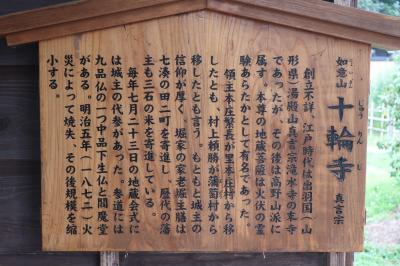 如意山
十輪寺
じゅうりんじ
真言宗
創立不詳、江戸時代は出羽国(山
形県)湯殿山真言宗滝水寺の末寺
であったが、その後は高野山派に
属す。本尊の地蔵菩薩は火伏の霊
験あらたかとして有名であった。
領主本庄繁長が里本庄村から移
したとも、村上頼勝が蒲萄村から
移したとも言う。もともと城主の
信仰が厚く、堀家の家老堀主膳は
七湊の田一町を寄進し、歴代の藩
主も三石の米を寄進している。
毎年七月二十三日の地蔵会式に
は城主の代参があった。参道には
九品仏の一つ中品下生仏と閻魔堂
がある。明治五年(一八七二)火
災によって焼失、その後規模を縮
小する